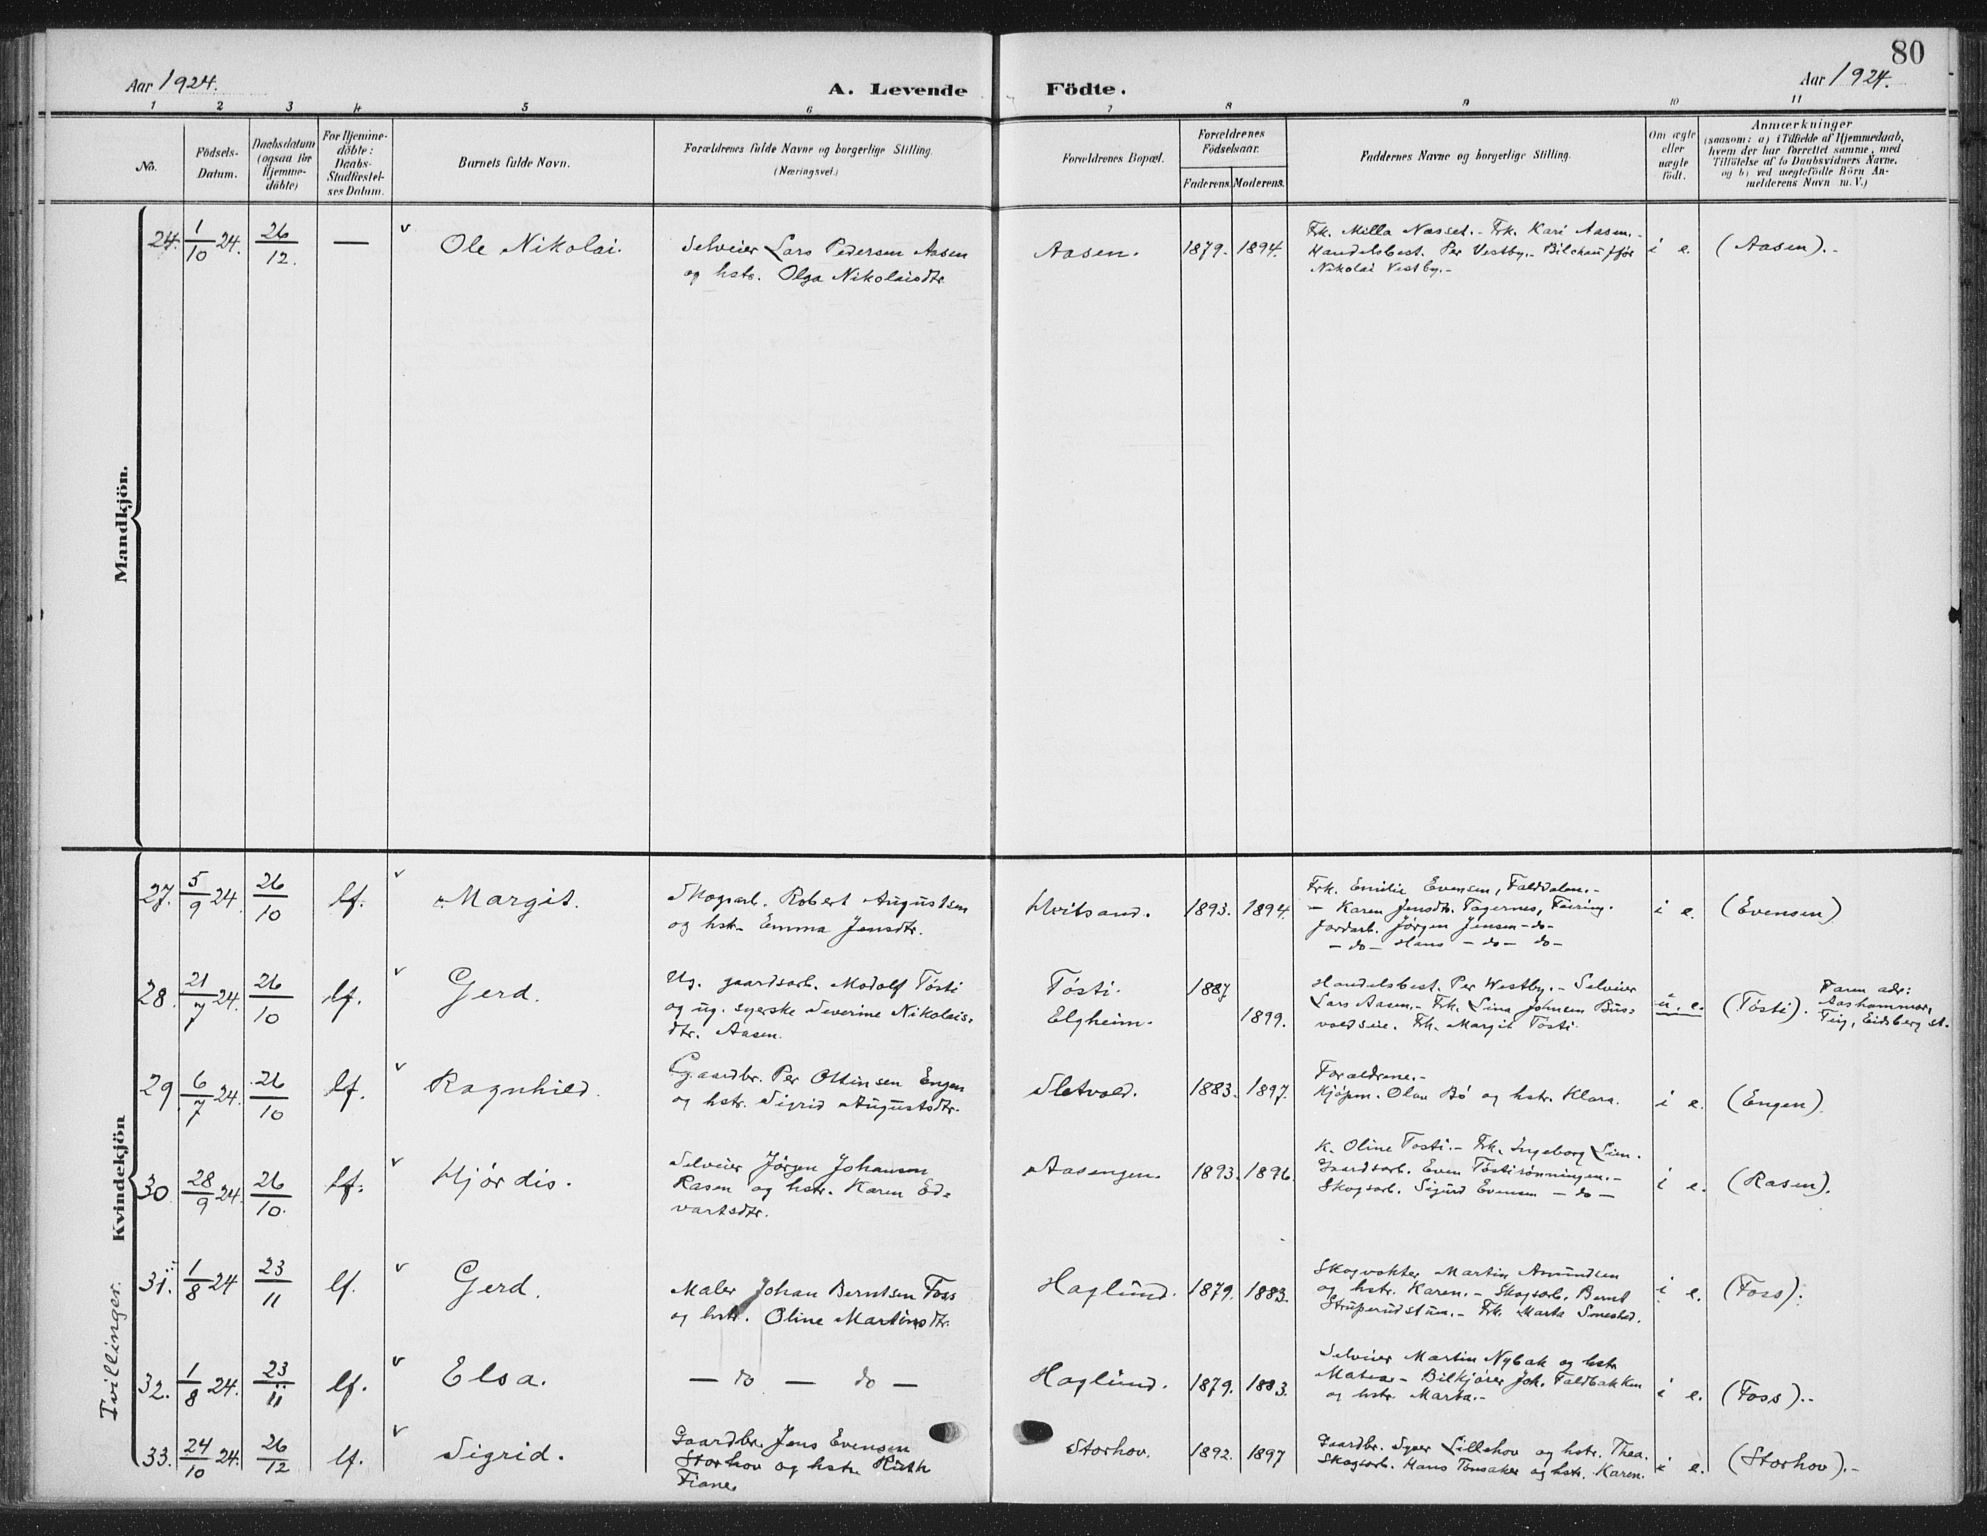 80
Aar 1924.
A. Levende
Födte.
Aar 1924.
1 2 3 4 5 6 7 8 9 10 11
No.
Födsels-
Datum.
Daabsdatum
(ogsaa for
Hjemme-
döbte)
For Hjemme-
döbte:
Daabs-
Stadfestel-
ses Datum.
Barnets fulde Navn.
Forældrenes fulde Navne og borgerlige Stilling.
(Næringsvei.)
Forældrenes Bopæl.
Forældrenes
Födselsaar.
Faderens. Moderens.
Faddernes Navne og borgerlige Stilling.
Om ægte
eller
uægte
födt.
Anmærkninger
(saasom: a) i Tilfælde af Hjemmedaab,
hvem der har forrettet samme, med
Tilföielse af to Daabsvidners Navne,
og b) ved uægtefödte Börn An-
melderens Navn m. V.)
Mandkjön.
24. 1/10 24. 26/12. — v Ole Nikolai.
Selveier Lars Pedersen Aasen
og hstr. Olga Nikolaisdtr.
Aasen. 1879. 1894.
Frk. Milla Næsset. - Frk. Kari Aasen. -
Handelsbest. Per Vestby. - Bilchauffør
Nikolai Vestby. -
i e. (Aasen). -
Kvindekjön
27. 5/9 24. 26/10 lf. v Margit.
Skogsarb. Robert Augustsen
og hstr. Emma Jensdtr.
Hvitsand. 1893. 1894.
Frk. Emilie Evensen, Faldalen. -
— Karen Jensdtr. Tagernes, Feiring.
Jordarb. Jørgen Jensen - do -
— do — Hans — do — do —
i e. (Evensen)
28. 21/7 24. 26/10 lf. v Gerd.
Ug. gaardsarb. Modolf Tøsti
og ug. syerske Severine Nikolais-
dtr. Aasen.
Tøsti. 1887
Elgheim. 1899.
Handelsbest. Per Westby. - Selveier
Lars Aasen. - Frk. Lina Johnsen Bus-
voldseie. Frk. Margit Tøsti.
u. e. (Tøsti).
Faren adr:
Aashammor,
Teig, Eidsberg st.
29 6/7 24. 26/10 lf. v Ragnhild.
Gaardbr. Per Ottinsen Engen
og hstr. Sigrid Augustsdtr.
Sletvold. 1883. 1897.
Forældrene. -
Kjøpm. Olav Bø og hstr. Klara.
i e. (Engen).
30. 28/9 24. 26/10. lf. v Hjørdis.
Selveier Jørgen Johansen
Rasen og hstr. Karen Ed-
vartsdtr.
Aasengen. 1893. 1896.
K. Oline Tosti. - Frk. Ingeborg Lien.
Gaardsarb. Even Tøstirønningen. -
Skogsarb. Sigurd Evensen — do —
i e. (Rasen).
Tvillinger.
31. 1/8 24 23/11 lf. v Gerd.
Maler Johan Berntsen Foss
og hstr. Oline Martinsdtr.
Haglund. 1879. 1883.
Skogvokter Martin Amundsen
og hstr. Karen. - Skogsarb. Bernt
Struperudstuen. - Frk. Marta
i e. (Foss).
32. 1/8 24. 23/11 lf. v Elsa.
— do — do —
Haglund. 1879. 1883.
Selveier Martin Nybak og hstr
Matea - Bilkjører Joh. Faldbakken
og hstr. Marta. -
i e. (Foss). -
33. 24/10 24. 26/12 lf. v Sigrid.
Gaardbr. Jens Evensen
Storhov og hstr. Ruth
Fiane
Storhov. 1892. 1897
Gaardbr. Syver Lillehov og hstr. Thea.
Skogsarb. Hans Tonsaker og hstr. Karen.
i e. (Storhov). -